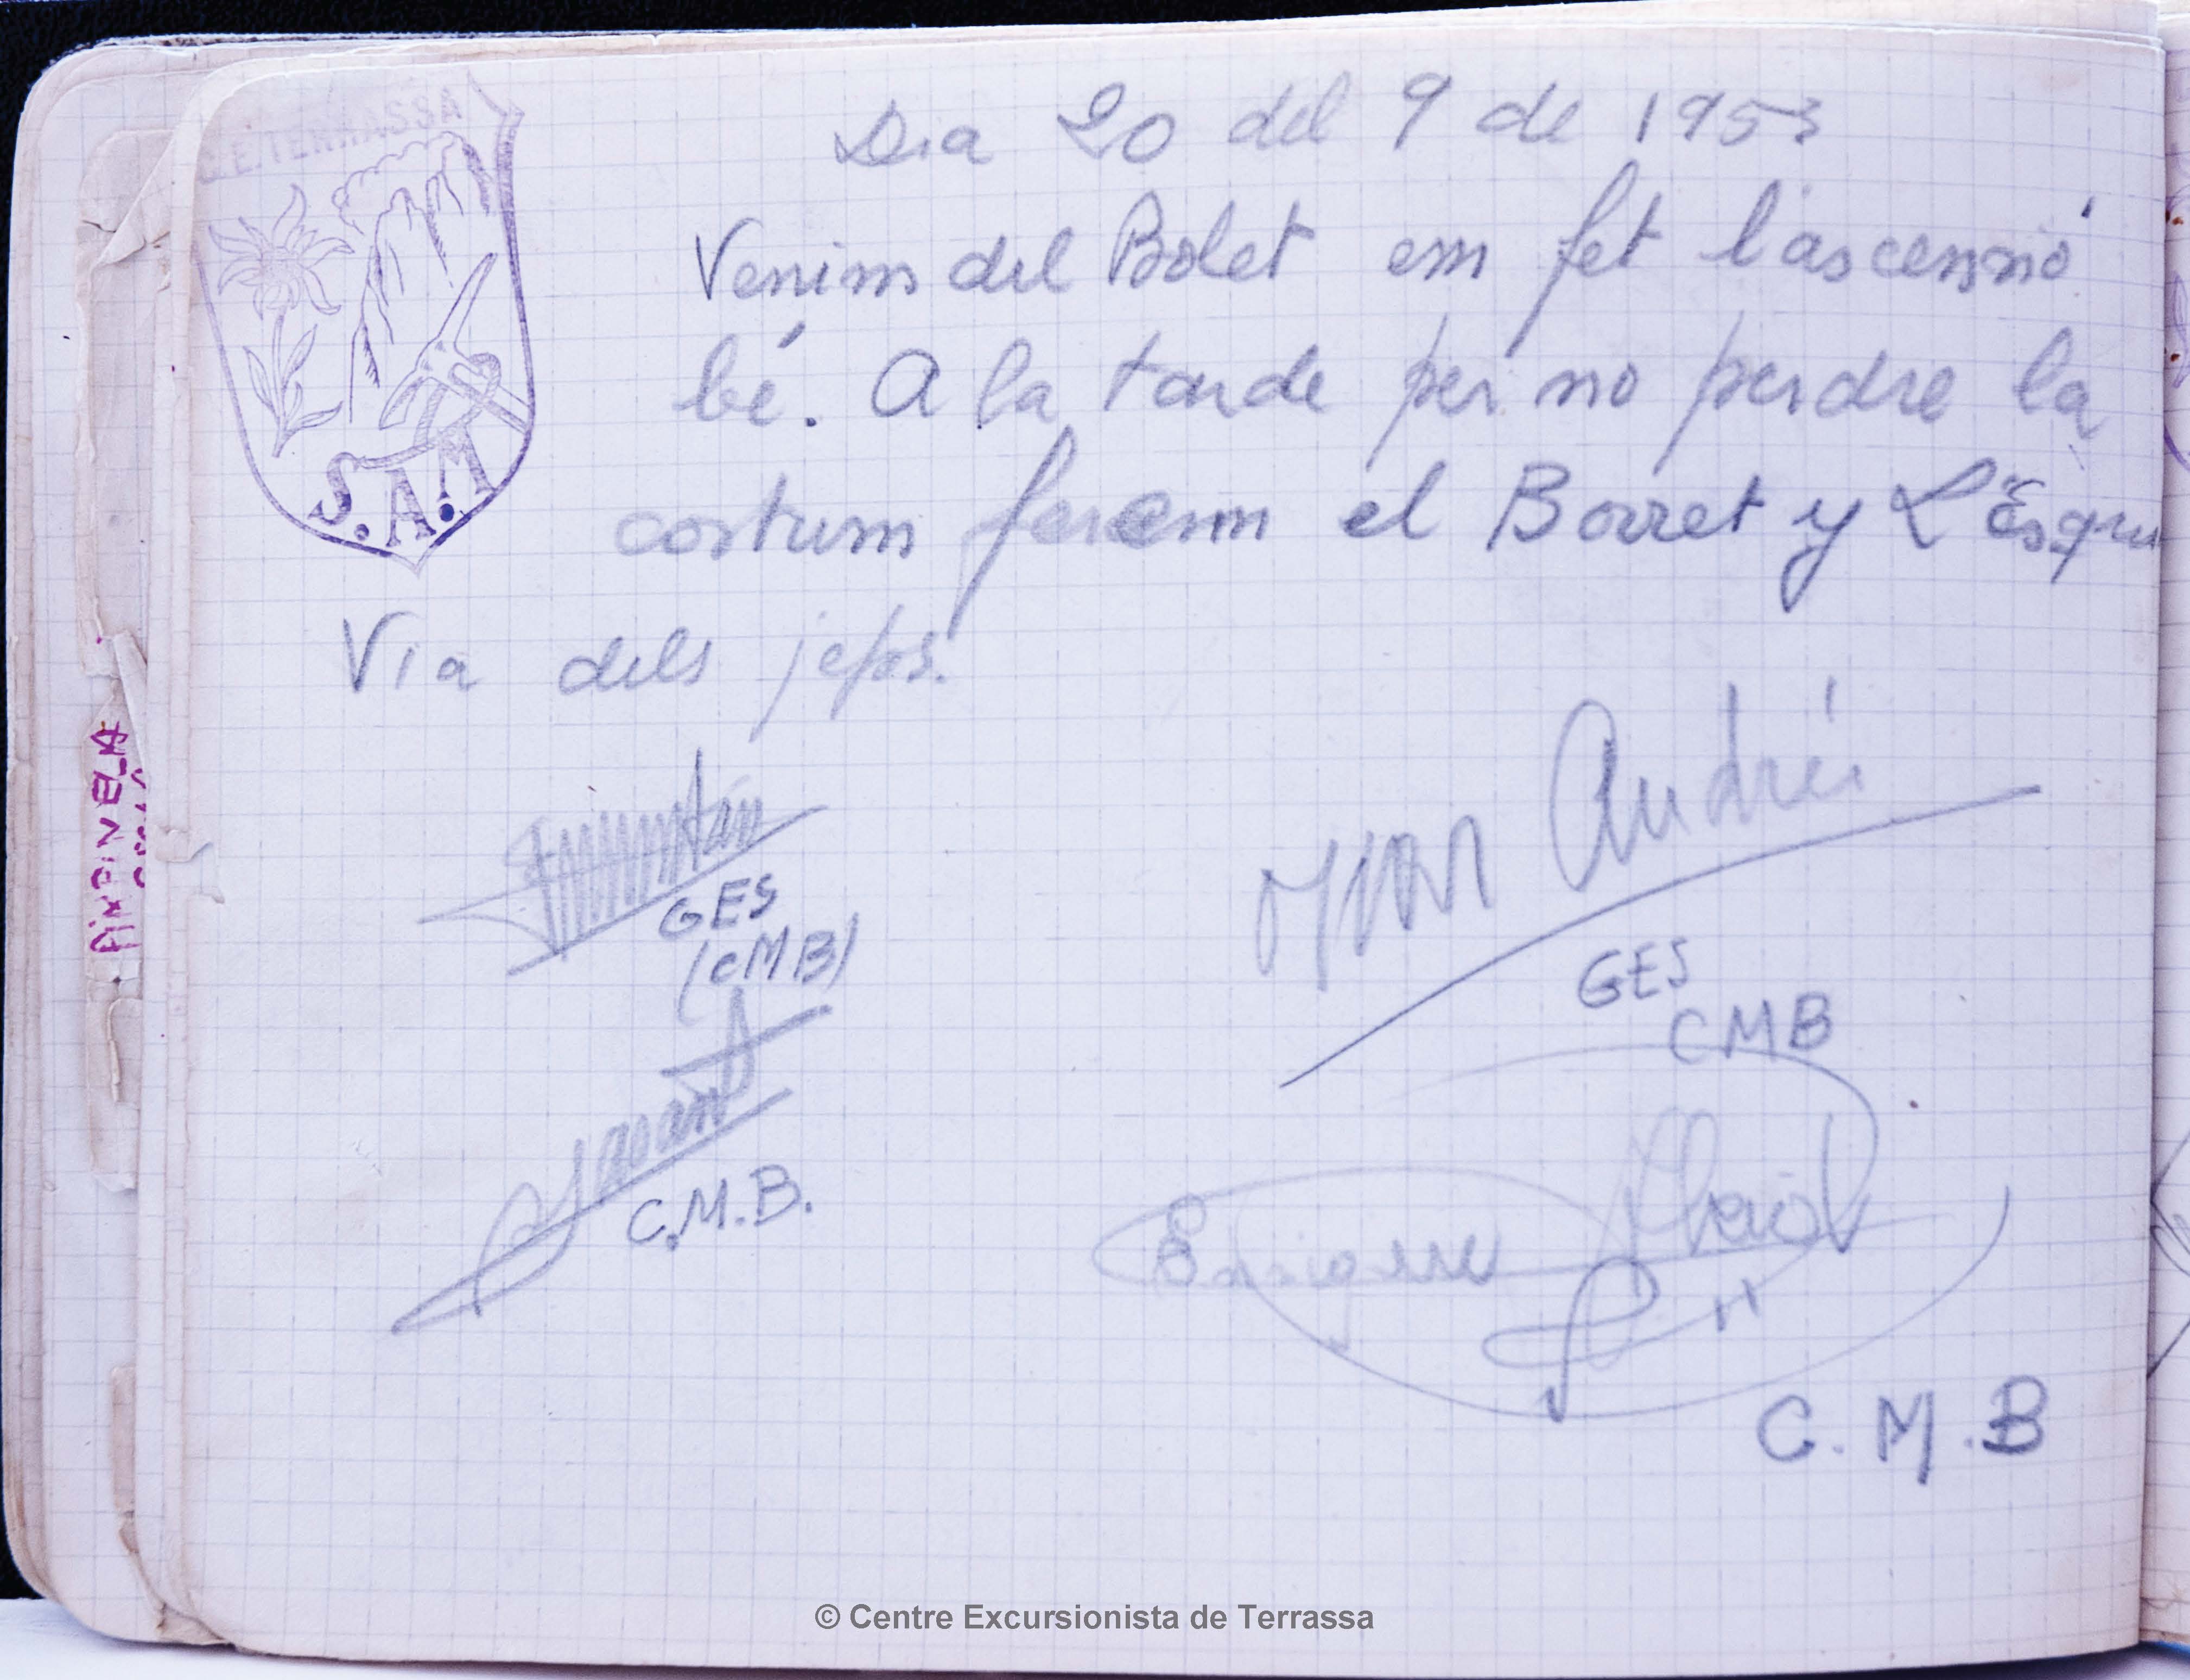 C.E. TERRASSA
S.A.M
Dia 20 del 9 de 1953
Venim del Bolet em fet l'ascensió
bé. A la tarde per no perdre la
costum farem el Borret y L'Esqu
Via dels jepas.
GES
(CMB)
Andréi
GES
CMB
C.M.B.
Enrique
C.M.B
PIMPINELA
© Centre Excursionista de Terrassa